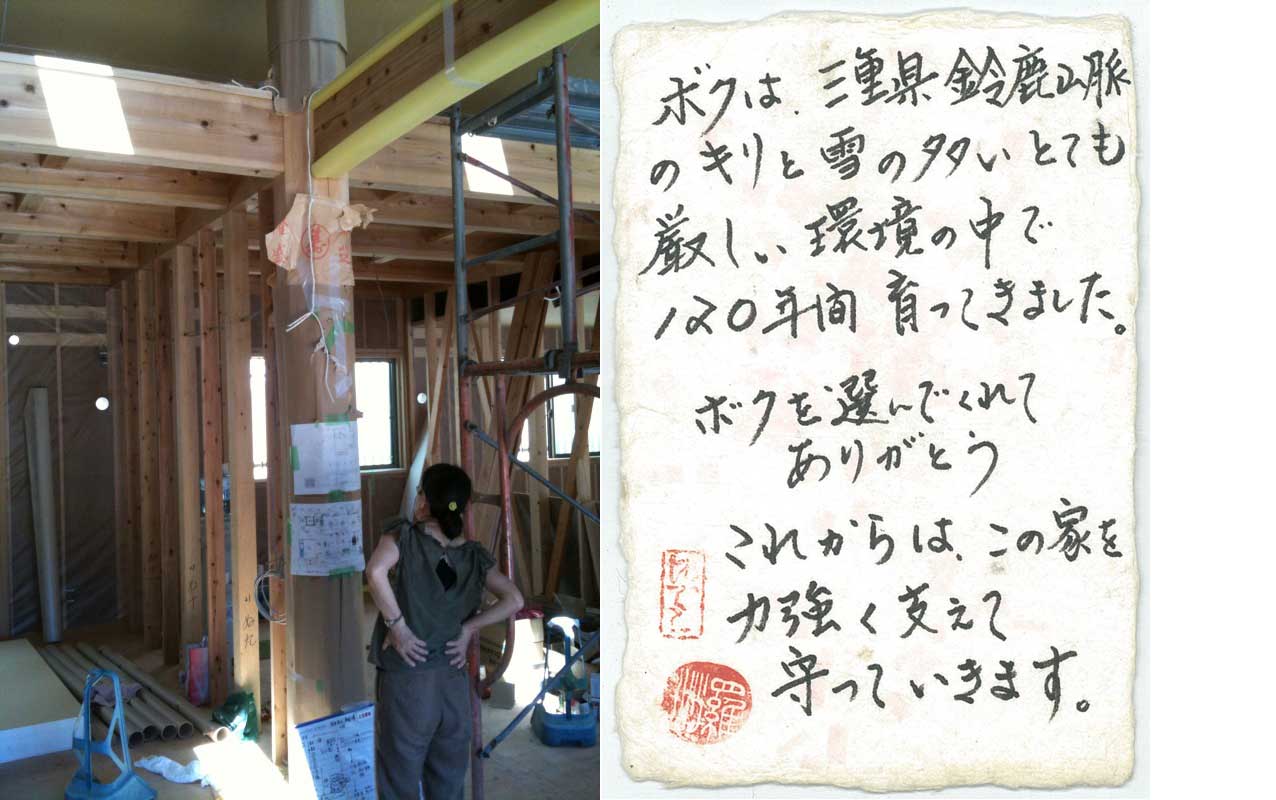 ボクは、三重県鈴鹿山脈
のキリと雪の多いとても
厳しい環境の中で
120年間育ってきました。
ボクを選んでくれて
ありがとう
これからは、この家を
力強く支えて
守っていきます。